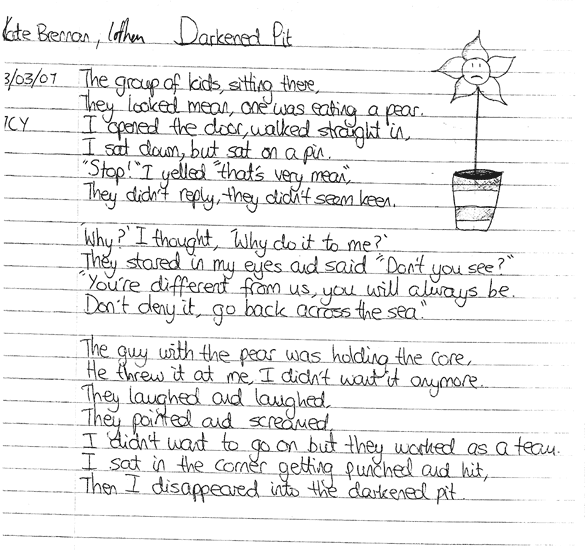 Kate Brennan, Lothun Darkened Pit
3/03/07 The group of kids, sitting there,
They looked mean, one was eating a pear.
7CY I opened the door, walked straight in,
I sat down, but sat on a pin.
"Stop!" I yelled "that's very mean",
They didn't reply, they didn't seem keen.
'Why?' I thought, 'Why do it to me?'
They stared in my eyes and said "Don't you see?"
"You're different from us, you will always be.
Don't deny it, go back across the sea."
The guy with the pear was holding the core,
He threw it at me, I didn't want it anymore.
They laughed and laughed
They pointed and screamed,
I didn't want to go on but they worked as a team.
I sat in the corner getting punched and hit,
Then I disappeared into the darkened pit.